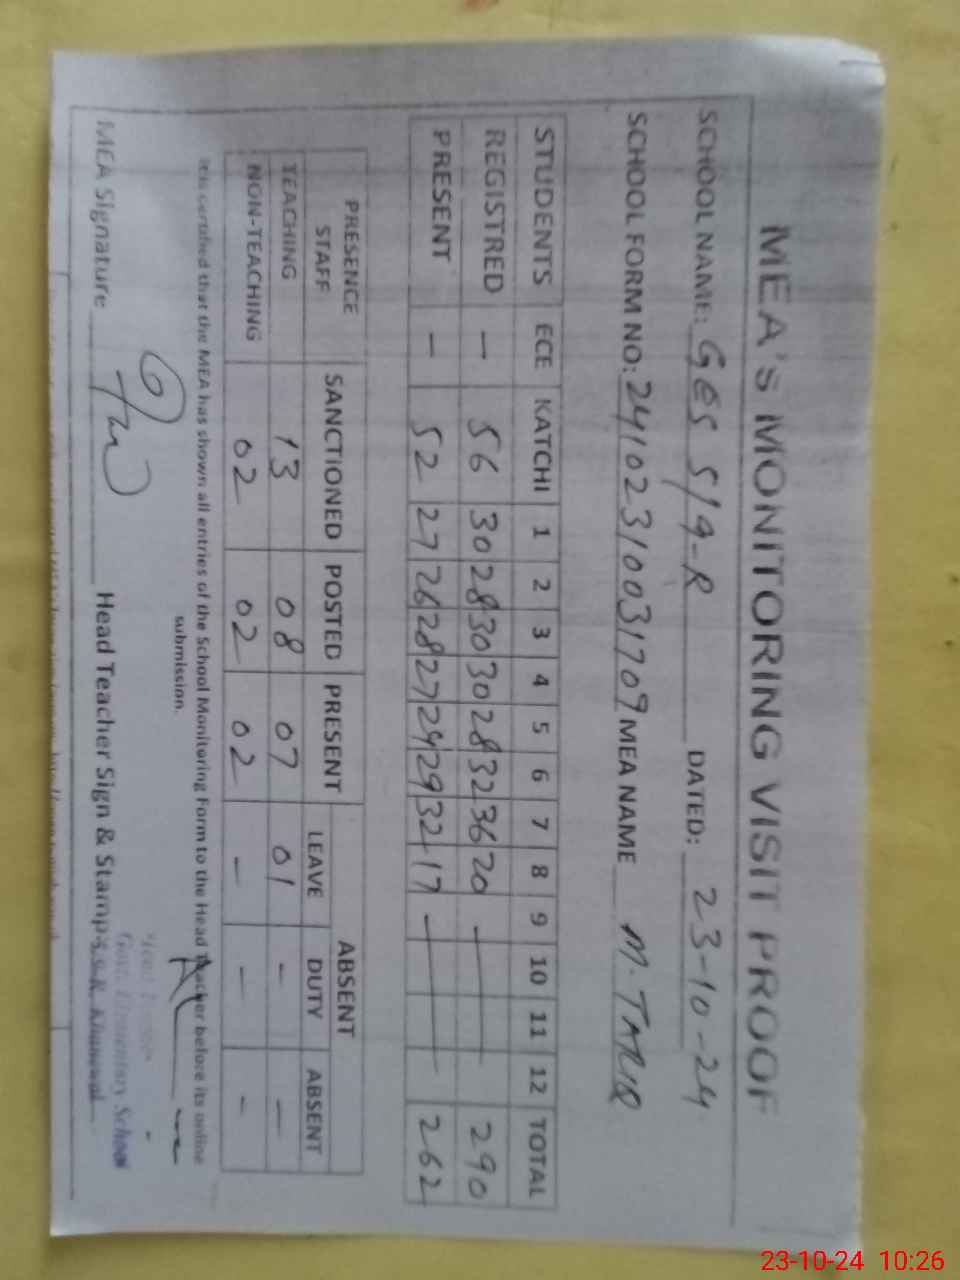 MEA's MONITORING VISIT PROOF
SCHOOL NAME: GES 5/9-R DATED: 23-10-24
SCHOOL FORM NO: 24102310031709 MEA NAME M. TARIQ
STUDENTS ECE KATCHI 1 2 3 4 5 6 7 8 9 10 11 12 TOTAL
REGISTRED — 56 30 28 30 30 28 32 36 20 — 290
PRESENT — 52 27 26 28 27 24 29 32 17 — 262
PRESENCE STAFF SANCTIONED POSTED PRESENT ABSENT
LEAVE DUTY ABSENT
TEACHING 13 08 07 01 - —
NON-TEACHING 02 02 02 - - -
It is certified that the MEA has shown all entries of the School Monitoring Form to the Head Teacher before its online
submission.
MEA Signature Head Teacher Sign & Stamp
Govt. Elementary School
5/9-R, Khanewal
23-10-24 10:26